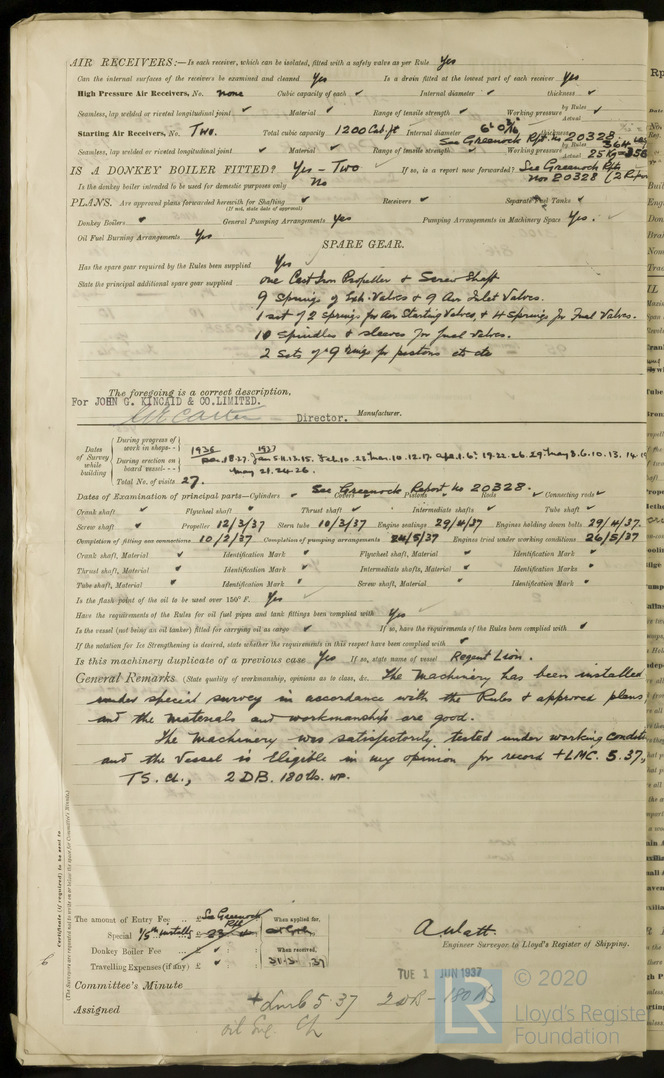 AIR RECEIVERS:—Is each receiver, which can be isolated, fitted with a safety valve as per Rule Yes
Can the internal surfaces of the receivers be examined and cleaned Yes Is a drain fitted at the lowest part of each receiver Yes
High Pressure Air Receivers, No. None Cubic capacity of each ✓ Internal diameter ✓ thickness ✓
Seamless, lap welded or riveted longitudinal joint ✓ Material ✓ Range of tensile strength ✓ Working pressure by Rules ✓ Actual
Starting Air Receivers, No. Two. Total cubic capacity 1200 Cub.ft Internal diameter 6' 0 thickness
See Greenock Rpt. No 20328
Seamless, lap welded or riveted longitudinal joint ✓ Material ✓ Range of tensile strength ✓ Working pressure by Rules 364 Actual 25 Kg = 356
IS A DONKEY BOILER FITTED? Yes - Two If so, is a report now forwarded? See Greenock Rpts
Is the donkey boiler intended to be used for domestic purposes only No Nos 20328 (2 Rpts
PLANS. Are approved plans forwarded herewith for Shafting ✓ Receivers ✓ Separate Fuel Tanks ✓
(If not, state date of approval)
Donkey Boilers General Pumping Arrangements Yes Pumping Arrangements in Machinery Space Yes.
Oil Fuel Burning Arrangements Yes
SPARE GEAR.
Has the spare gear required by the Rules been supplied Yes
State the principal additional spare gear supplied one Cast Iron Propeller & Screw Shaft
9 Springs of Exh. Valves & 9 Air Inlet Valves.
1 set of 2 Springs for Air Starting Valves, & 4 Springs for Fuel Valves.
10 Spindles & sleeves for fuel valves.
2 Sets of 9 Rings for pistons etc etc
The foregoing is a correct description,
For JOHN G. KINCAID & CO. LIMITED.
Director. Manufacturer.
Dates of Survey while building
During progress of work in shops-- 1936 1937
During erection on board vessel--- Dec. 18.27. Jan 5.11.13.15. Feb.10.23. Mar.10.12.17. Apl.1.6. 19.22.26.29. May 3.6.10.13.14.19
May 21.24.26.
Total No. of visits 27.
See Greenock Report No 20328.
Dates of Examination of principal parts—Cylinders Covers Pistons Rods ✓ Connecting rods ✓
Crank shaft ✓ Flywheel shaft Thrust shaft ✓ Intermediate shafts ✓ Tube shaft ✓
Screw shaft ✓ Propeller 12/3/37 Stern tube 10/3/37 Engine seatings 29/4/37 Engines holding down bolts 29/4/37.
Completion of fitting sea connections 10/2/37 Completion of pumping arrangements 24/5/37 Engines tried under working conditions 26/5/37
Crank shaft, Material ✓ Identification Mark ✓ Flywheel shaft, Material ✓ Identification Mark ✓
Thrust shaft, Material ✓ Identification Mark Intermediate shafts, Material ✓ Identification Marks
Tube shaft, Material ✓ Identification Mark Screw shaft, Material Identification Mark ✓
Is the flash point of the oil to be used over 150° F. Yes
Have the requirements of the Rules for oil fuel pipes and tank fittings been complied with Yes
Is the vessel (not being an oil tanker) fitted for carrying oil as cargo ✓ If so, have the requirements of the Rules been complied with ✓
If the notation for Ice Strengthening is desired, state whether the requirements in this respect have been complied with
Is this machinery duplicate of a previous case Yes If so, state name of vessel Regent Lion.
General Remarks (State quality of workmanship, opinions as to class, &c. The machinery has been installed
under special survey in accordance with the Rules & approved plans,
and the materials and workmanship are good.
The machinery was satisfactorily tested under working condit
and the Vessel is Eligible in my opinion for record +LMC. 5.37,
TS. CL., 2 DB. 180 lbs. WP.
Certificate (if required) to be sent to
(The Surveyors are requested not to write on or below the space for Committee's Minute.)
The amount of Entry Fee .. See Greenock Rpt When applied for,
Special 1/5th
Donkey Boiler Fee ... £ When received,
Travelling Expenses (if any) £ 31.3.37
A Watt.
Engineer Surveyor to Lloyd's Register of Shipping.
Committee's Minute TUE 1 JUN 1937
Assigned + Lmc 5.37 2 DB - 180 lbs
oil Eng CL
© 2020
Lloyd's Register
Foundation
LR